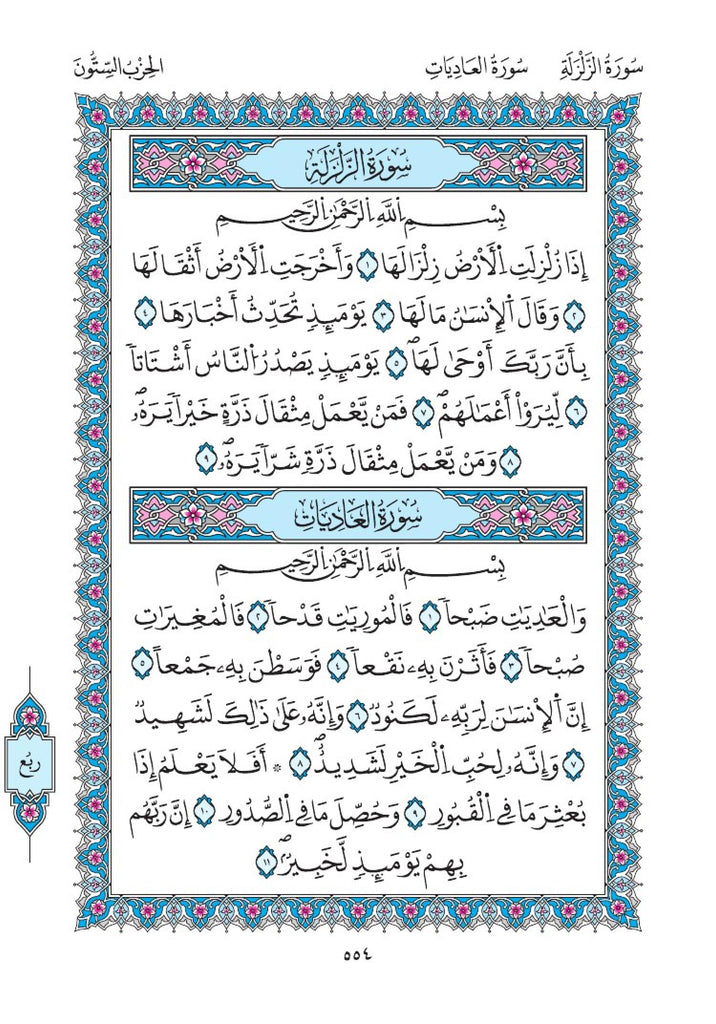 سُورَةُ الزَّلْزَلَةِ سُورَةُ العَادِيَاتِ الحِزْبُ السِّتُّونَ
سُورَةُ الزَّلْزَلَةِ
بِسْمِ اِ۬للَّهِ اِ۬لرَّحْمَٰنِ اِ۬لرَّحِيمِ
إِذَا زُلْزِلَتِ اِ۬لْأَرْضُ زِلْزَالَهَا ١ وَأَخْرَجَتِ اِ۬لْأَرْضُ أَثْقَالَهَا
٢ وَقَالَ اَ۬لْإِنسَٰنُ مَا لَهَا ٣ يَوْمَئِذٖ تُحَدِّثُ أَخْبَارَهَا ٤
بِأَنَّ رَبَّكَ أَوْحَىٰ لَهَاۖ ٥ يَوْمَئِذٖ يَصْدُرُ اُ۬لنَّاسُ أَشْتَاتاٗ
٦ لِّيُرَوْاْ أَعْمَٰلَهُمْۖ ٧ فَمَنْ يَّعْمَلْ مِثْقَالَ ذَرَّةٍ خَيْراٗ يَرَهُۥۖ
٨ وَمَنْ يَّعْمَلْ مِثْقَالَ ذَرَّةٖ شَرّاٗ يَرَهُۥۖ ٩
سُورَةُ العَادِيَاتِ
بِسْمِ اِ۬للَّهِ اِ۬لرَّحْمَٰنِ اِ۬لرَّحِيمِ
وَالْعَٰدِيَٰتِ ضَبْحاٗ ١ فَالْمُورِيَٰتِ قَدْحاٗ ٢ فَالْمُغِيرَٰتِ
صُبْحاٗ ٣ فَأَثَرْنَ بِهِۦ نَقْعاٗ ٤ فَوَسَطْنَ بِهِۦ جَمْعاً ٥
إِنَّ اَ۬لْإِنسَٰنَ لِرَبِّهِۦ لَكَنُودٞ ٦ وَإِنَّهُۥ عَلَىٰ ذَٰلِكَ لَشَهِيدٞ
٧ وَإِنَّهُۥ لِحُبِّ اِ۬لْخَيْرِ لَشَدِيدٌۖ ٨ ۞ أَفَلَا يَعْلَمُ إِذَا
بُعْثِرَ مَا فِي اِ۬لْقُبُورِ ٩ وَحُصِّلَ مَا فِي اِ۬لصُّدُورِ ١٠ إِنَّ رَبَّهُم
بِهِمْ يَوْمَئِذٖ لَّخَبِيرٌۖ ١١
رُبُع
٥٥٤